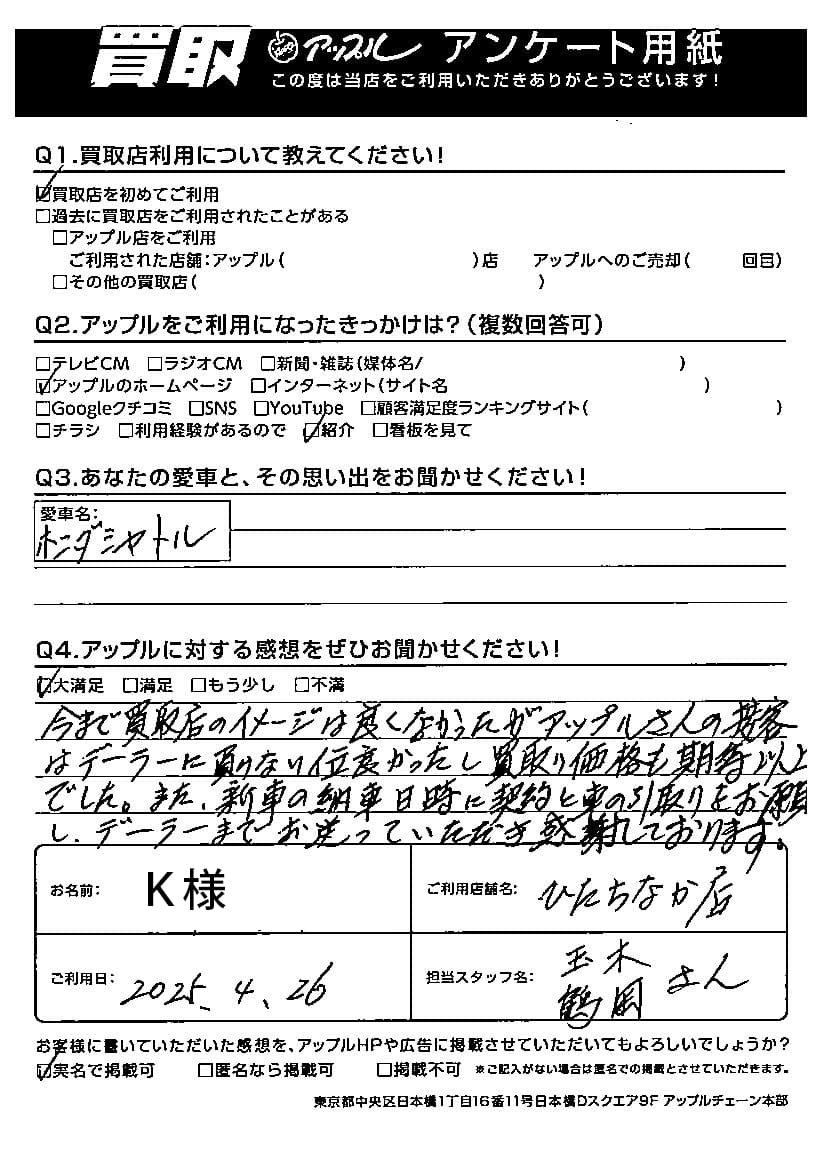 買取 アップル アンケート用紙
この度は当店をご利用いただきありがとうございます!
Q1.買取店利用について教えてください!
☑買取店を初めてご利用
□過去に買取店をご利用されたことがある
□アップル店をご利用
ご利用された店舗:アップル( )店 アップルへのご売却( 回目)
□その他の買取店( )
Q2.アップルをご利用になったきっかけは?(複数回答可)
□テレビCM □ラジオCM □新聞・雑誌(媒体名/ )
☑アップルのホームページ □インターネット(サイト名 )
□Googleクチコミ □SNS □YouTube □顧客満足度ランキングサイト( )
□チラシ □利用経験があるので ☑紹介 □看板を見て
Q3.あなたの愛車と、その思い出をお聞かせください!
愛車名:
ホンダシャトル
Q4.アップルに対する感想をぜひお聞かせください!
☑大満足 □満足 □もう少し □不満
今まで買取店のイメージは良くなかったがアップルさんの接客
はデーラーに負けない位良かったし買取り価格も期待以上
でした。また、新車の納車日時に契約と車の引取りをお願
し、デーラーまでお送っていただき感謝しております。
お名前: K様 ご利用店舗名: ひたちなか店
ご利用日: 2025.4.26 担当スタッフ名: 玉木 鶴岡 さん
お客様に書いていただいた感想を、アップルHPや広告に掲載させていただいてもよろしいでしょうか?
☑実名で掲載可 □匿名なら掲載可 □掲載不可 ※ご記入がない場合は匿名での掲載とさせていただきます。
東京都中央区日本橋1丁目16番11号日本橋Dスクエア9F アップルチェーン本部